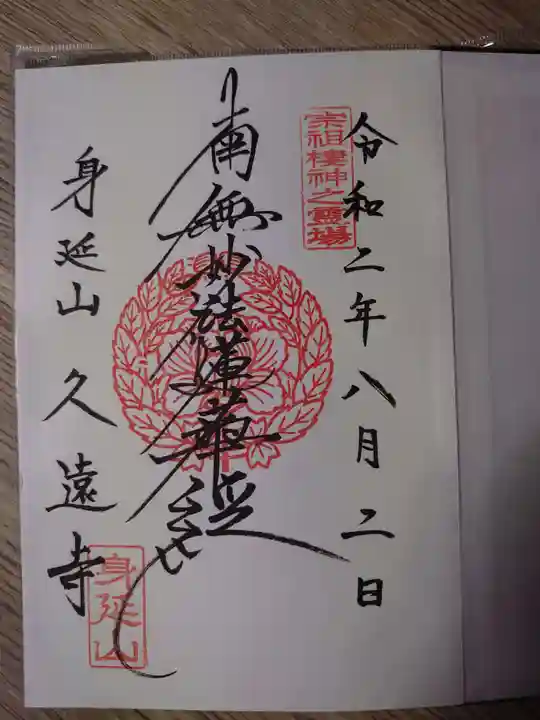 令和二年八月二日
宗祖棲神之霊場
南無妙法蓮華経
身延山 久遠寺
身延山